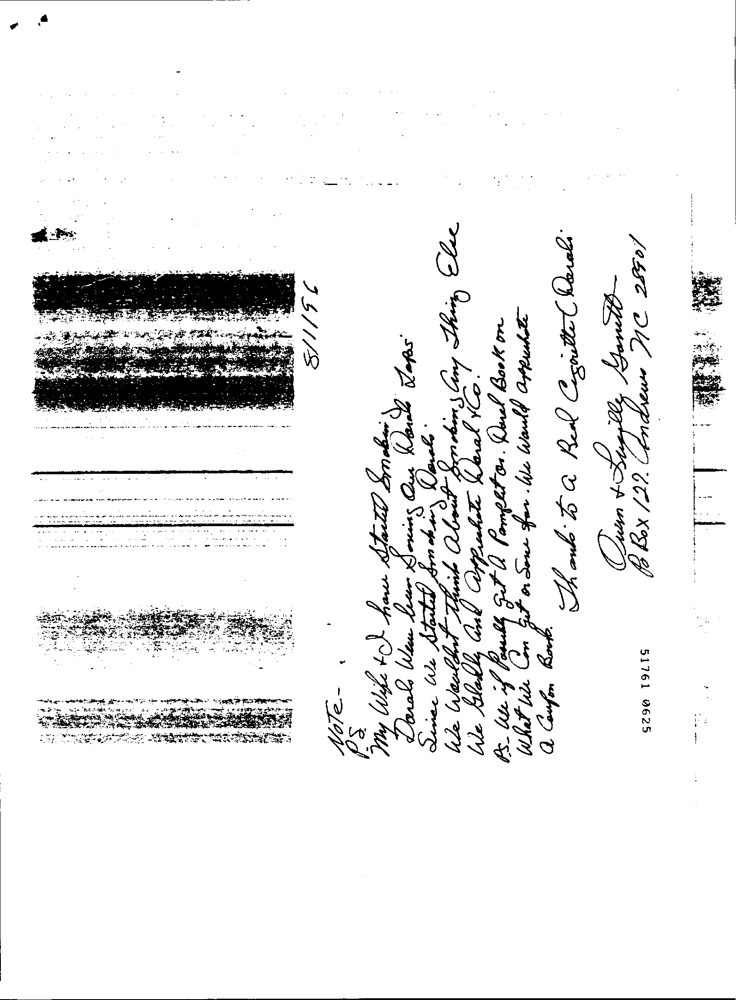 8/1/96
Note-
P.S.
My Wife + I have Started Smoking
Dorals Were been Saving Our Dorals Tops'
Since We Started Smoking Dorals.
We Wouldnt think About Smoking Any Thing Else
We Gladly and Appreciate Doral + Co.
PS- We if Possible Get A Pamplet or. Doral Book on
What We Can get or Save for. We Would Appreciate
a Coupon Book.
Thanks to a Real Cigarette (Dorals.
Garrett
PO Box 122. Andrews NC 28901
51761 0625